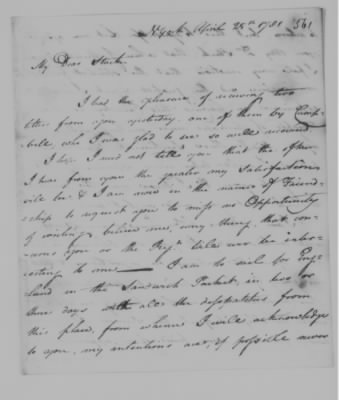 NYork April 25th 1781 561
My Dear Stuart
I had the pleasure of receiving two
letters from you yesterday, one of them by Camp-
bell who I was glad to see so well received
I hope I need not tell you that the oftner
I hear from you the greater my Satisfaction
will be & I am now in the name of Friend-
ship to request you to miss no Opportunity
of writing, believe me, every thing that con-
cerns you or the Regt. will ever be inter-
esting to me — I am to sail for Eng-
land in the Sandwich Packet, in two or
three days with all the dispatches from
this place, from whence I will acknowledge
to you, my intentions and, if possible never